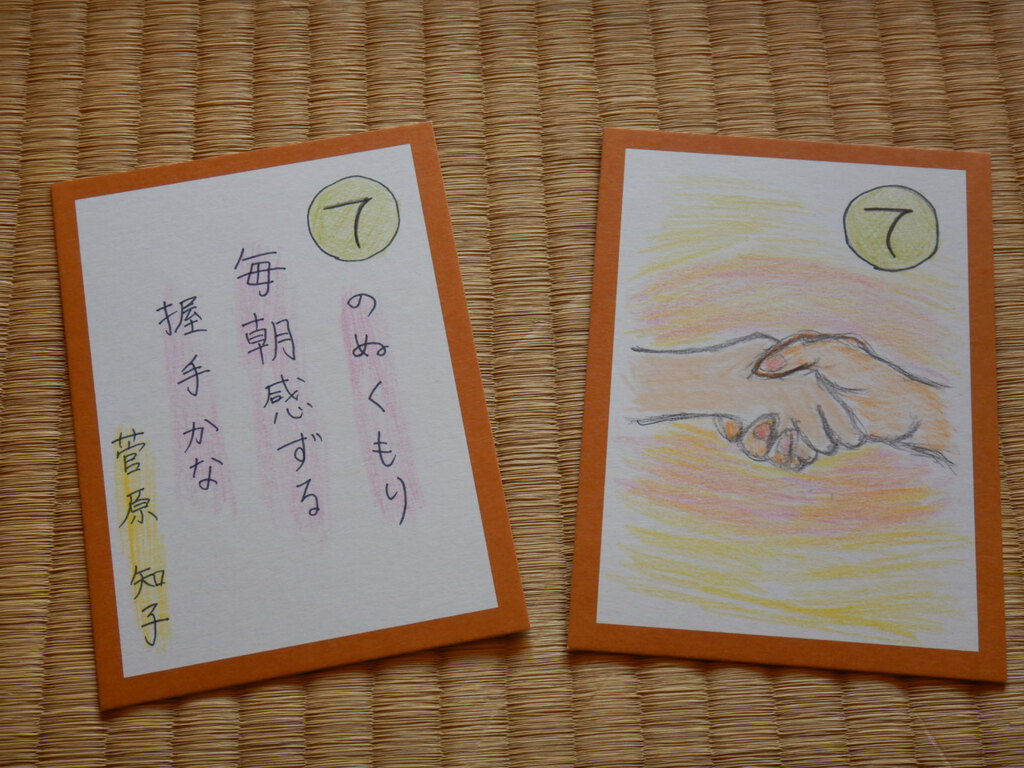 て
のぬくもり
毎朝感ずる
握手かな
菅原知子
て